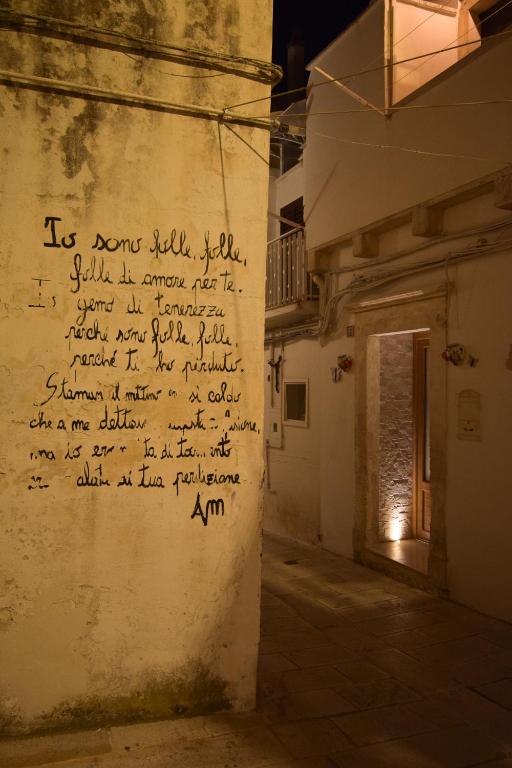 Io sono folle, folle,
folle di amore per te.
Io gemo di tenerezza
perché sono folle, folle,
perché ti ho perduto.
Stamane il mattino era sì caldo
che a me dettava questa
ma io ero
di tua perdizione
AM